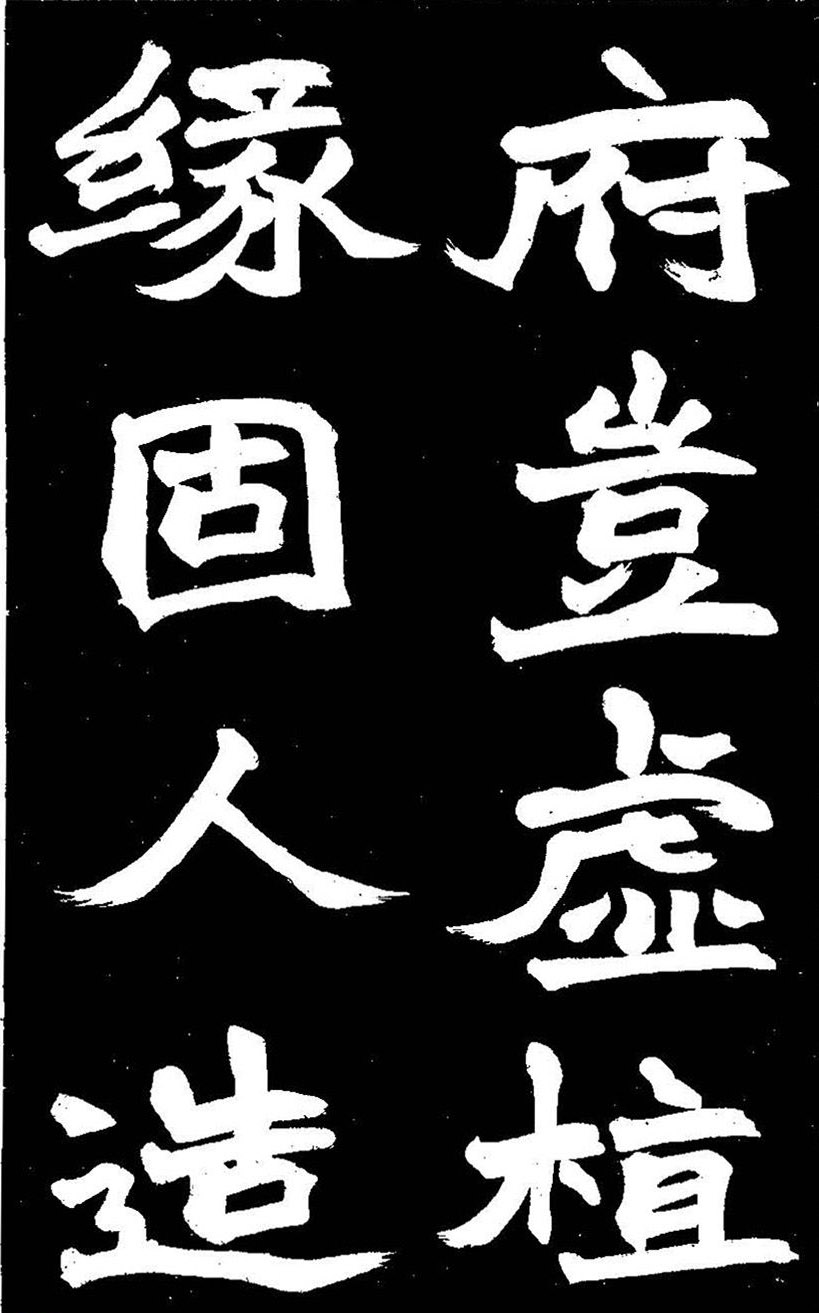 府豈虛植
緣固人造